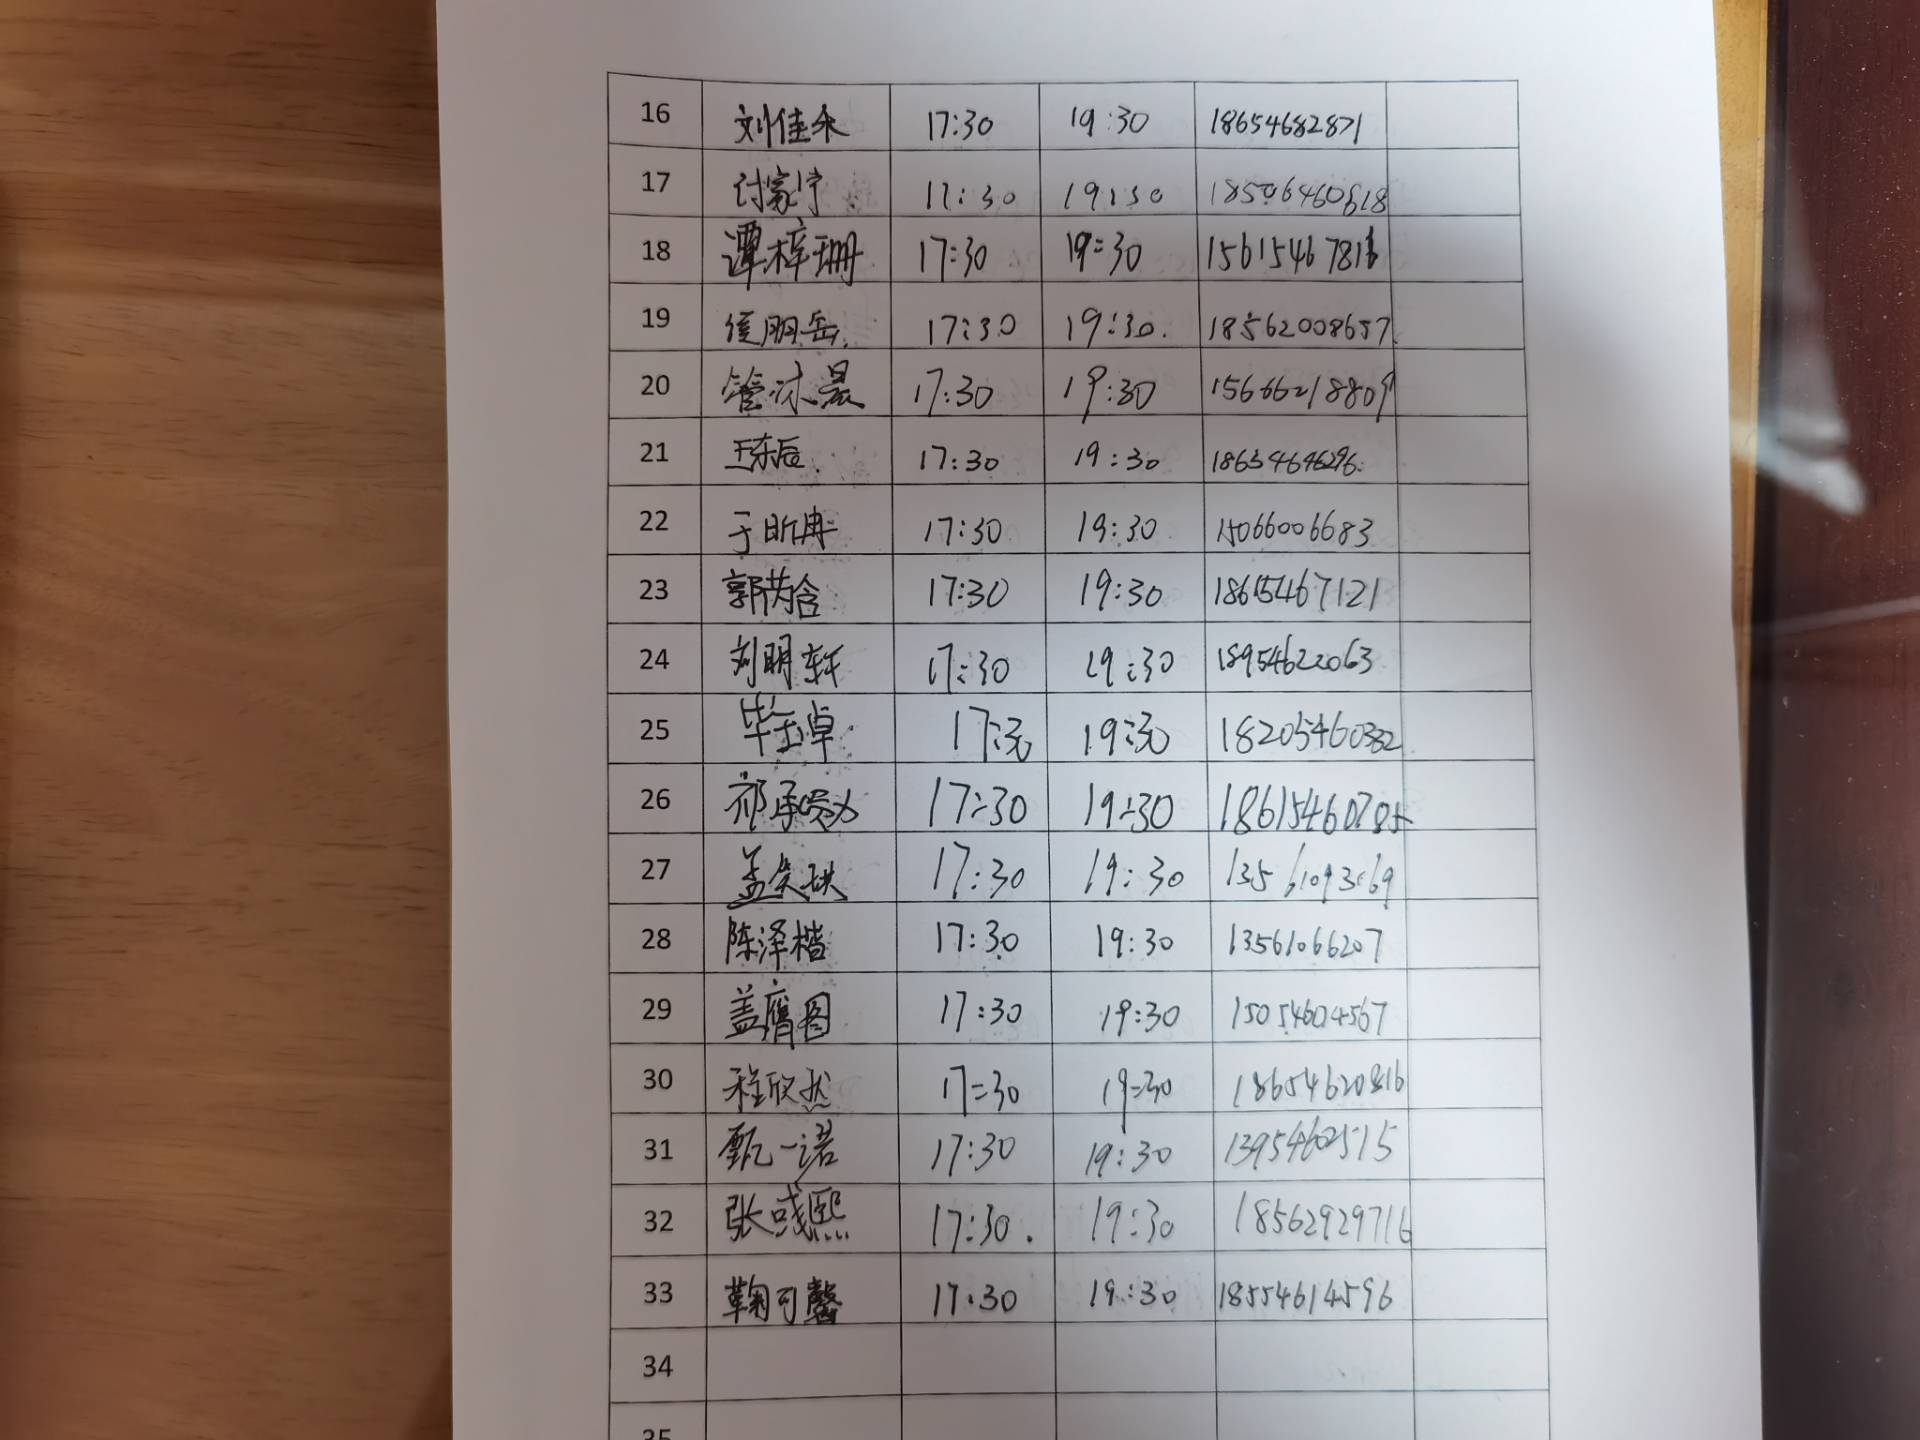 16 刘佳禾 17:30 19:30 18654682871
17 讨家宁 17:30 19:30 18506460618
18 谭梓珊 17:30 19:30
19 侯朋岳 17:30 19:30. 18562008657
20 管沐晨 17:30 19:30 15666218809
21 王东后. 17:30 19:30 18654646296
22 于昕冉 17:30 19:30 15066006683
23 郭芮含 17:30 19:30 18615467121
24 刘明轩 17:30 19:30 18954622063
25 毕玉卓 17:30 19:30 18205460382
26 17:30 19:30 18615460785
27 17:30 19:30
28 陈泽楷 17:30 19:30 13561066207
29 盖膺图 17:30 19:30 15054604567
30 程欣然 17=30 19=30 18654620816
31 甄一诺 17:30 19:30 13954602515
32 17:30. 19:30 18562929716
33 鞠可馨 17:30 19:30 18554614596
34
35